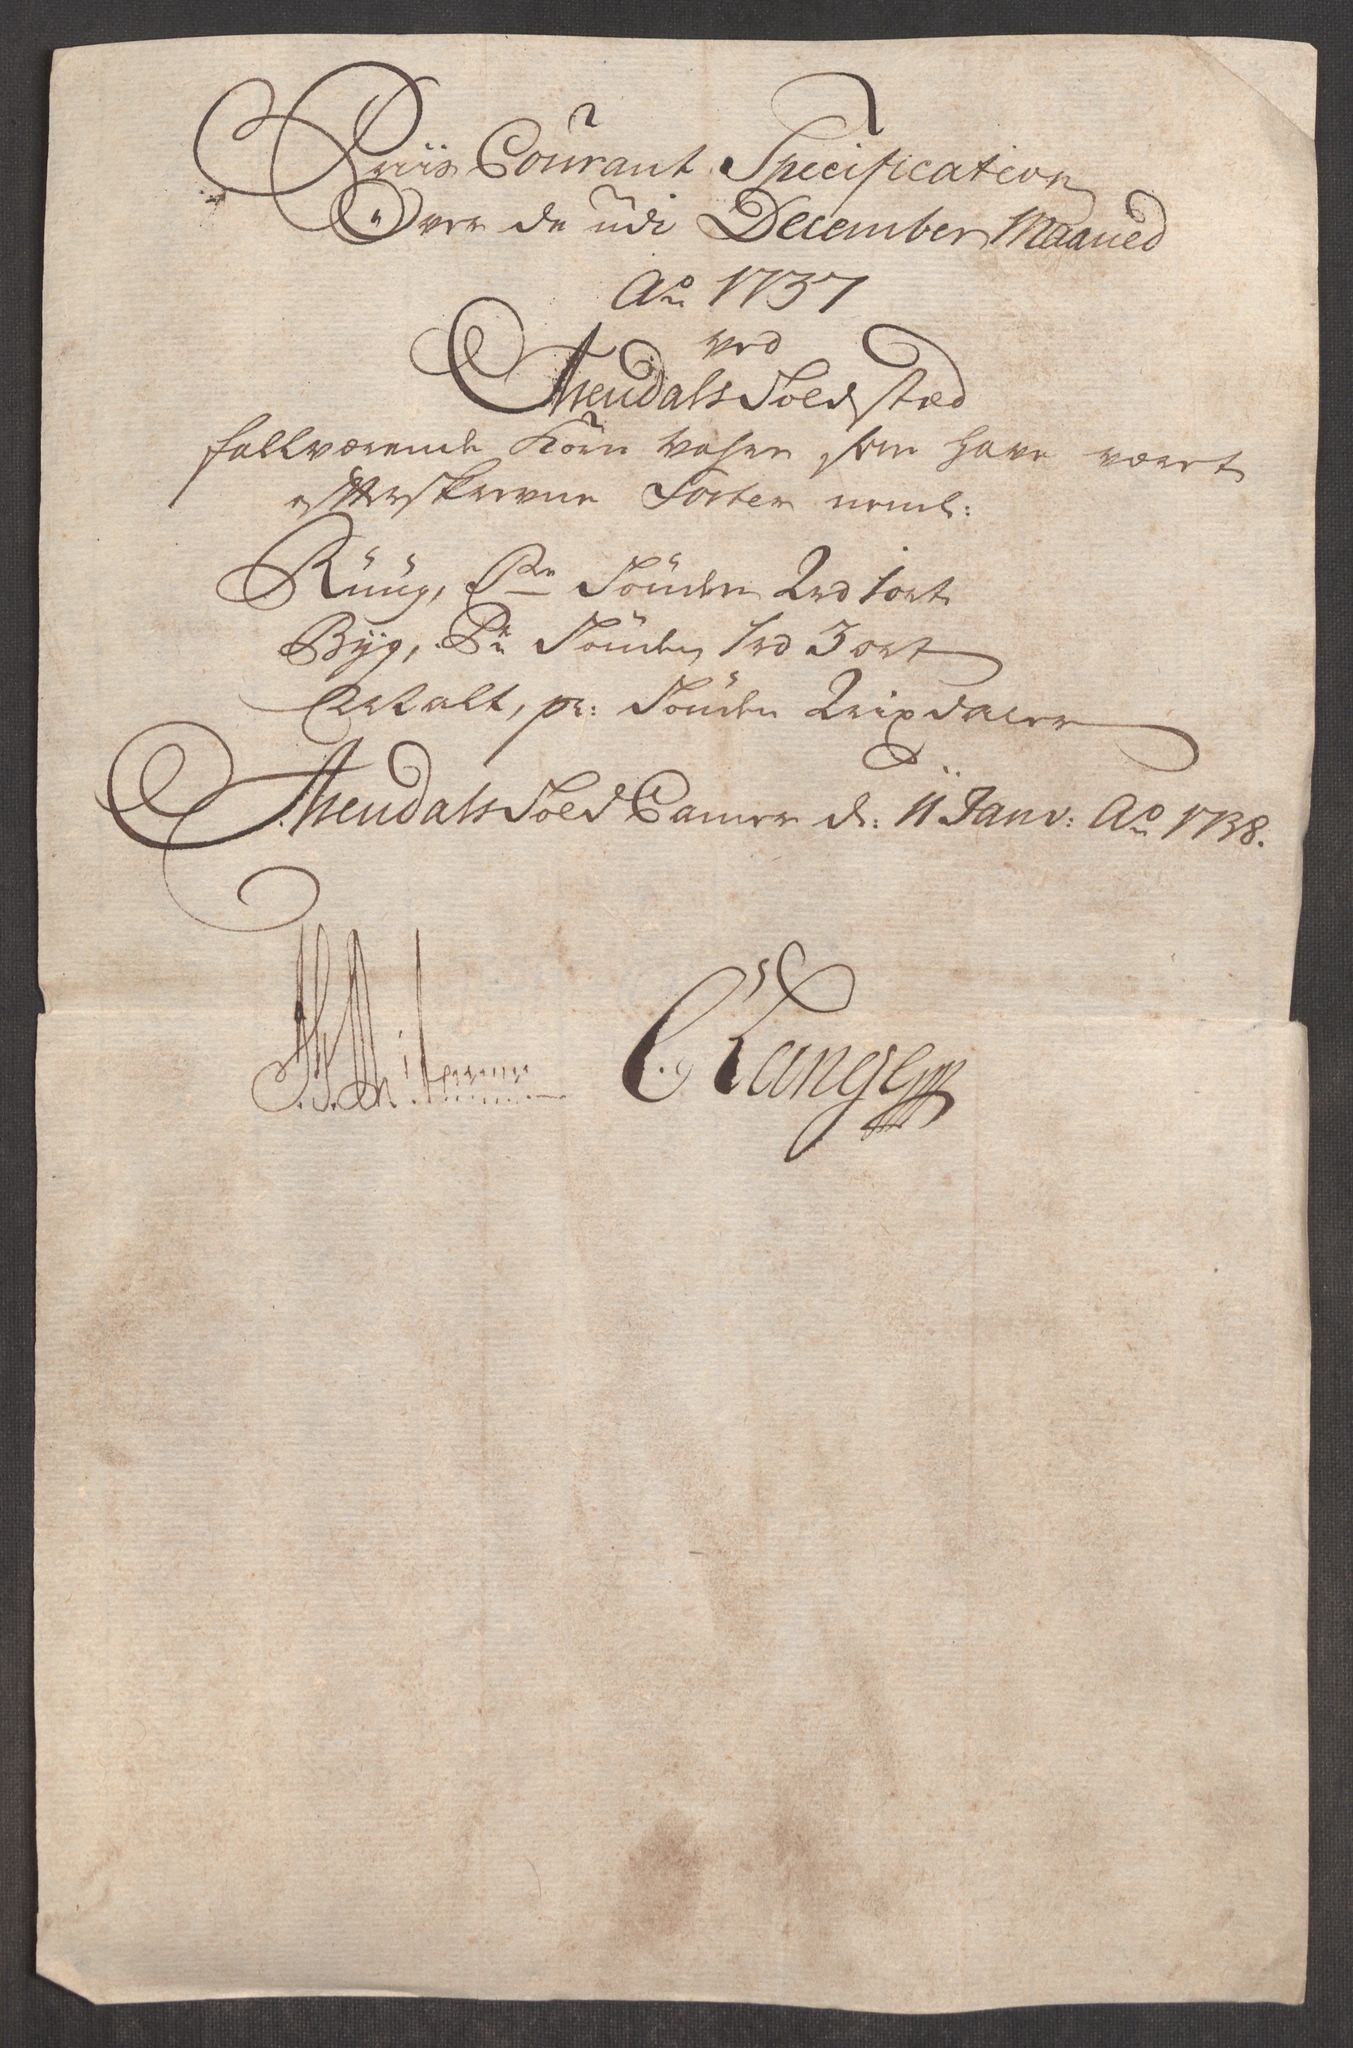 Priis Courant Specification
Over de udi December Maaned
Ao 1737
ved
Arendals Told sted
falværende Korn Vahre som have været
efterskrevne Sorter neml:
Rüüg, Pr Tönden 2 rd 1 ort
Byg, Pr Tönden 1 rd 3 ort
Malt, pr: Tönden 2 rixdaler
Arendals Told Camer d: 11 Janv: Ao 1738.
C Lange